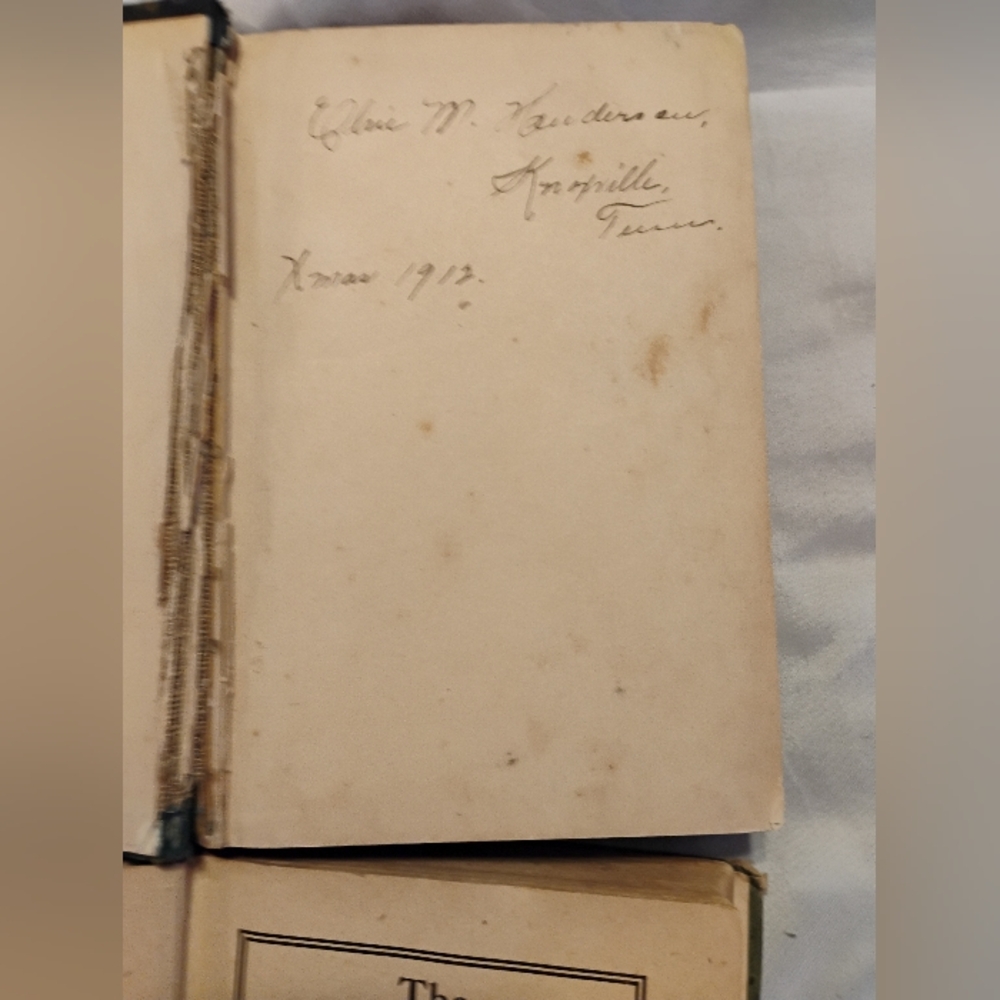 Elsie M. Henderson,
Knoxville,
Tenn.
Xmas 1912.
The